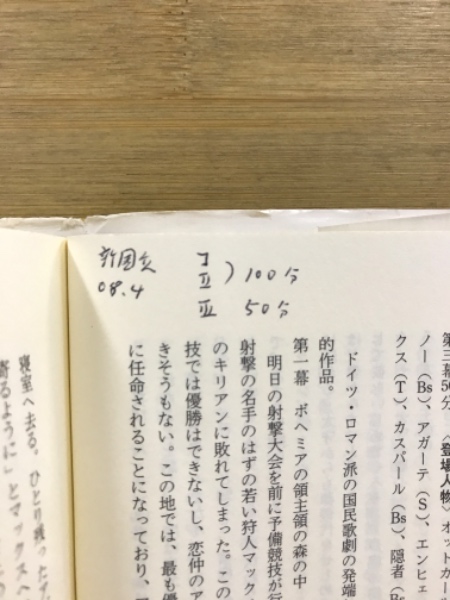 新国立
08.4
Ⅰ
Ⅱ ) 100分
Ⅲ 50分
第三幕50分 〈登場人物〉オットカー
ノー（Bs）、アガーテ（S）、エンヒェ
クス（T）、カスパール（Bs）、隠者（Bs
ドイツ・ロマン派の国民歌劇の発端
的作品。
第一幕 ボヘミアの領主領の森の中
明日の射撃大会を前に予備競技が行
射撃の名手のはずの若い狩人マック
のキリアンに敗れてしまった。この
技では優勝はできないし、恋仲のア
きそうもない。この地では、最も優
に任命されることになっており、
寝室へ去る。ひとり残った
寄るように」とマックスへ